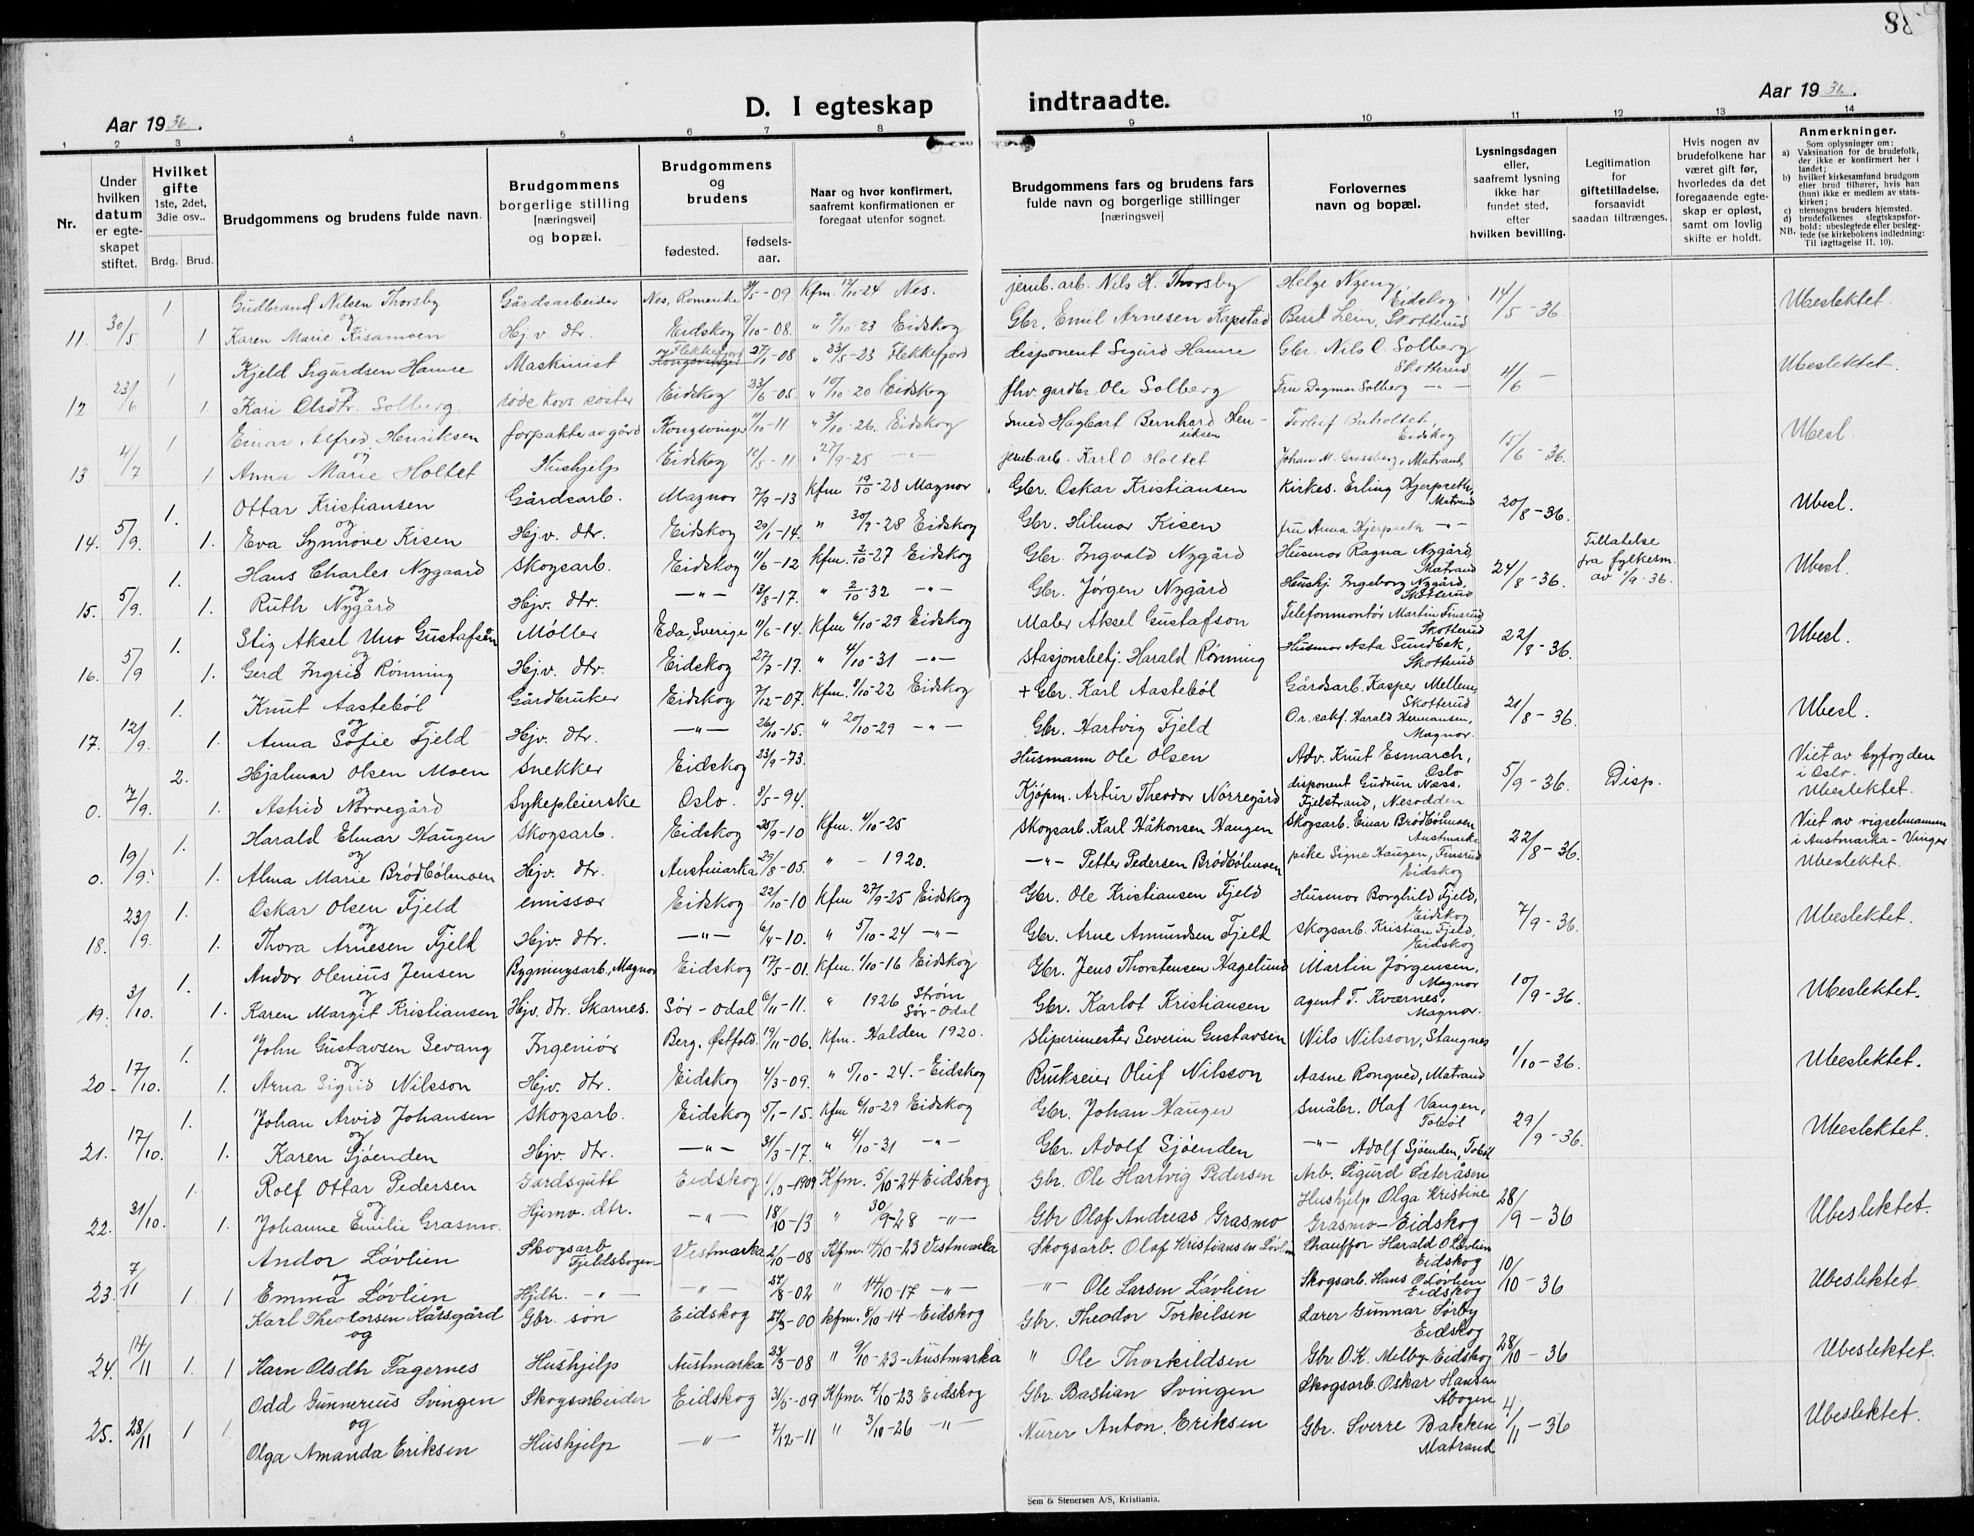 88
Aar 1936.
D. I egteskap
indtraadte.
Aar 1936.
1 2 3 4 5 6 7 8 9 10 11 12 13 14
Nr.
Under hvilken datum er egteskapet stiftet.
Hvilket gifte 1ste, 2det, 3die osv..
Brdg. Brud.
Brudgommens og brudens fulde navn.
Brudgommens borgerlige stilling [næringsvei] og bopæl.
Brudgommens og brudens
fødested. fødselsaar.
Naar og hvor konfirmert, saafremt konfirmationen er foregaat utenfor sognet.
Brudgommens fars og brudens fars fulde navn og borgerlige stillinger [næringsvei]
Forlovernes navn og bopæl.
Lysningsdagen eller, saafremt lysning ikke har fundet sted, efter hvilken bevilling.
Legitimation for giftetilladelse, forsaavidt saadan tiltrænges.
Hvis nogen av brudefolkene har været gift før, hvorledes da det foregaaende egteskap er opløst, samt om lovlig skifte er holdt.
Anmerkninger.
Som oplysninger om:
a) Vaksination for de brudefolk, der ikke er konfirmert her i landet;
b) hvilket kirkesamfund brudgom eller brud tilhører, hvis han (hun) ikke er medlem av statskirken;
c) utensogns bruders hjemsted.
d) brudefolkenes slegtskapsforhold; ubeslegtede eller beslegtede (se kirkebokens indledning: Til iagttagelse II. 10).
NB.
1 Gudbrand Nilsen Thorsby Gårdsarbeider Nes, Romerike 31/5-09 Kfm. 12/10-24 Nes. jernb.arb. Nils H. Thorsby Helge Nyeng, Eidskog 14/5-36 Ubeslektet.
11. 30/5 og
1 Karen Marie Kisamoen Hj.v. dtr. Eidskog 9/10-08. " 7/10-23 Eidskog Gbr. Emil Arnesen Kapstad Berit Lein, Skotterud
1 Kjeld Sigurdsen Hamre Maskinist Flekkefjord 27/1-08 " 23/5-23 Flekkefjord disponent Sigurd Hamre Gbr. Nils O. Solberg Skotterud 11/6 - Ubeslektet.
12 23/6 og
1. Kari Olsdtr. Solberg røde kors søster Eidskog 23/6-05. " 10/10-20 Eidskog fhv. gardbr. Ole Solberg Fru Dagmar Solberg -"-
1 Einar Alfred Henriksen forpakter av gård Kongsvinger 11/10-11 " 3/10-26. Eidskog Smed Hagbart Bernhard Henriksen Torleif Buholtet, Eidskog 15/6-36. Ubesl.
13 4/7 og
1 Anna Marie Holtet Hushjelp Eidskog 10/5-11. " 27/9-25 -"- jernb.arb. Karl O Holtet Johan M. Gressberg, Matrand
1. Ottar Kristiansen Gårdsarb. Magnor 7/9-13 Kfm 19/10-28 Magnor Gbr. Oskar Kristiansen Kirkes. Erling Hjerpseth, Matrand 20/8-36. Ubesl.
14. 5/9. og
1. Eva Synnøve Kisen Hj.v. dtr. Eidskog 20/1-14. " 30/9-28 Eidskog Gbr. Hilmar Kisen fru Anna Hjerpseth -"-
1. Hans Charles Nygaard Skogsarb. Eidskog 11/6-12 Kfm. 2/10-27 Eidskog Gbr. Ingvald Nygård Husmor Ragna Nygård, Matrand 24/8-36. Tillatelse fra fylkesm. av 1/9-36. Ubesl.
15. 5/9. og
1. Ruth Nygård Hjv. dtr. -"- 13/8-17. " 2/10-32 -"- Gbr. Jørgen Nygård Hushj. Ingeborg Nygård, Skotterud
1. Stig Aksel Uno Gustafsån Møller Eda, Sverige 11/6-14. Kfm 6/10-29 Eidskog Maler Aksel Gustafson Telefonmontør Martin Finsrud Skotterud 22/8-36. Ubesl.
16. 5/9 og
1. Gerd Ingrid Rønning Hjv. dtr. Eidskog 27/7-17. " 4/10-31 -"- Stasjonsbetj. Harald Rønning Husmor Asta Sundbæk, Skotterud
1. Knut Aastebøl Gårdbruker Eidskog 7/12-07. Kfm. 8/10-22 Eidskog + Gbr. Karl Aastebøl Gårdsarb. Kasper Mellem, Skotterud 21/8-36. Ubesl.
17. 12/9. og
1. Anna Sofie Fjeld Hjv. dtr. -"- 26/10-15. " 20/10-29 -"- Gbr. Hartvig Fjeld O.r. sakf. Harald Hermansen, Magnor.
2. Hjalmar Olsen Moen Snekker Eidskog 23/9-73. Husmann Ole Olsen Adv. Knut Esmarch, Oslo 5/9-36. Disp. Viet av byfogden i Oslo. Ubeslektet.
0. 7/9. og
1. Astrid Nørregård Sykepleierske Oslo. 8/5-94. Kjøpm. Artur Theodor Nørregård disponent Gudrun Næss, Fjelstrand, Nesodden
1. Harald Elmar Haugen Skogsarb. Eidskog 25/9-10 Kfm. 4/10-25 Skogsarb. Karl Håkonsen Haugen Skogsarb. Einar Brødbølmoen Austmarka 22/8-36. Viet av vigselmannen i Austmarka - Vinger Ubeslektet.
0. 19/9. og
1. Alma Marie Brødbølmoen Hjv. dtr. Austmarka 29/8-05. " - 1920. -"- Petter Pedersen Brødbølmoen pike Signe Haugen, Finsrud Eidskog
1. Oskar Olsen Fjeld emissær Eidskog 22/10-10 Kfm 27/9-25 Eidskog Gbr. Ole Kristiansen Fjeld Husmor Borghild Fjeld, Eidskog 7/9-36. Ubeslektet.
18. 23/9. og
1. Thora Arnesen Fjeld Hjv. dtr. -"- 6/4-10. " 5/10-24 -"- Gbr. Arne Amundsen Fjeld Skogsarb. Kristian Fjeld, Eidskog
1. Andor Olenius Jensen Bygningsarb. Magnor Eidskog 17/5-01. Kfm. 1/10-16 Eidskog Gbr. Jens Thorstensen Hagelund Martin Jørgensen, Magnor 10/9-36. Ubeslektet.
19. 3/10. og
1. Karen Margit Kristiansen Hjv. dtr. Skarnes. Sør-Odal 6/11-11. " 1926 Strøm Sør-Odal Gbr. Karlot Kristiansen agent T. Kværnes, Magnor.
1. John Gustavsen Sevang Ingeniør Berg, Østfold. 19/11-06. Kfm. Halden 1920. Sliperimester Severin Gustavsen Nils Nilsson, Stangnes 1/10-36. Ubeslektet.
20- 17/10. og
1. Arna Sigrid Nilsson Hjv. dtr. Eidskog 4/3-09. " 5/10-24.- Eidskog Brukseier Oluf Nilsson Aasne Rongved, Matrand
1. Johan Arvid Johansen Skogsarb. Eidskog 5/1-15. Kfm 6/10-29 Eidskog Gbr. Johan Hauger Småbr. Olaf Vangen, Tobøl 29/9-36. Ubeslektet.
21. 17/10. og
1. Karen Sjøenden Hjv. dtr. -"- 31/3-17. " 4/10-31 -"- Gbr. Adolf Sjøenden -"- Adolf Sjøenden, Tobøl
1. Rolf Ottar Pedersen Gardsgutt Eidskog 1/10-1909 Kfm. 5/10-24 Eidskog Gbr. Ole Hartvig Pedersen Arb. Sigurd Sæteråsen 28/9-36 Ubeslektet.
22. 31/10. og
1. Johanne Emilie Grasmo. Hjemv. dtr. -"- 18/10-13 " 30/9-28 -"- Gbr Olaf Andreas Grasmo Hushjelp Olga Kristine Grasmo-Eidskog
Andor Løvlien Skogsarb Fjeldskogen Vestmarka 2/10-08 Kfm. 14/10-23 Vestmarka Skogsarb. Olaf Kristiansen Løvlien Chauffør Harald O Løvlien Eidskog 10/10-36 Ubeslektet.
23. 7/11 1 og
1 Emma Løvlien Hjlh. -"- -"- 27/8-02 " 14/10-17 -"- -"- Ole Larsen Løvlien Skogsarb. Hans O Løvlien Eidskog
Karl Theodorsen Kårsgård Gbr. søn Eidskog 27/3-00 Kfm. 8/10-14 - Eidskog Gbr. Theodor Torkilsen Lærer Gunnar Sørby Eidskog 28/10-36 Ubeslektet.
24. 14/11 1. og
1 Harn Olsdtr Fagernes Hushjelp Austmarka 23/3-08 " 9/10-23-Austmarka " Ole Thorkildsen Gbr. O.K. Melby Eidskog
Odd Gunnerius Svingen Skogsarbeider Eidskog 31/5-09 Kfm. 7/10-23 Eidskog Gbr. Bastian Svingen Skogsarb. Oskar Hansen Åbogen 4/11-36 Ubeslektet.
25. 28/11 1 og
1 Olga Amanda Eriksen Hushjelp -"- 7/12-11 " 3/10-26 -"- Murer Anton Eriksen Gbr. Sverre Bakken Matrand
Sem & Stenersen A/S, Kristiania.